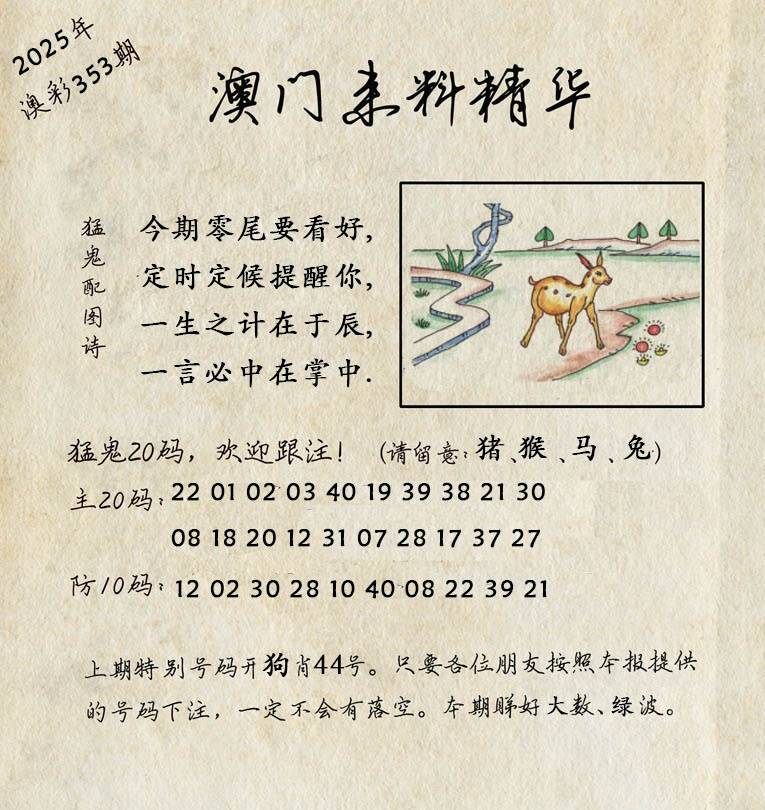 2025年
澳彩353期
澳门来料精华
猛鬼配图诗
今期零尾要看好,
定时定候提醒你,
一生之计在于辰,
一言必中在掌中.
猛鬼20码，欢迎跟注！（请留意：猪、猴、马、兔）
主20码：22 01 02 03 40 19 39 38 21 30
08 18 20 12 31 07 28 17 37 27
防10码：12 02 30 28 10 40 08 22 39 21
上期特别号码开狗肖44号。只要各位朋友按照本报提供
的号码下注，一定不会有落空。本期睇好大数、绿波。